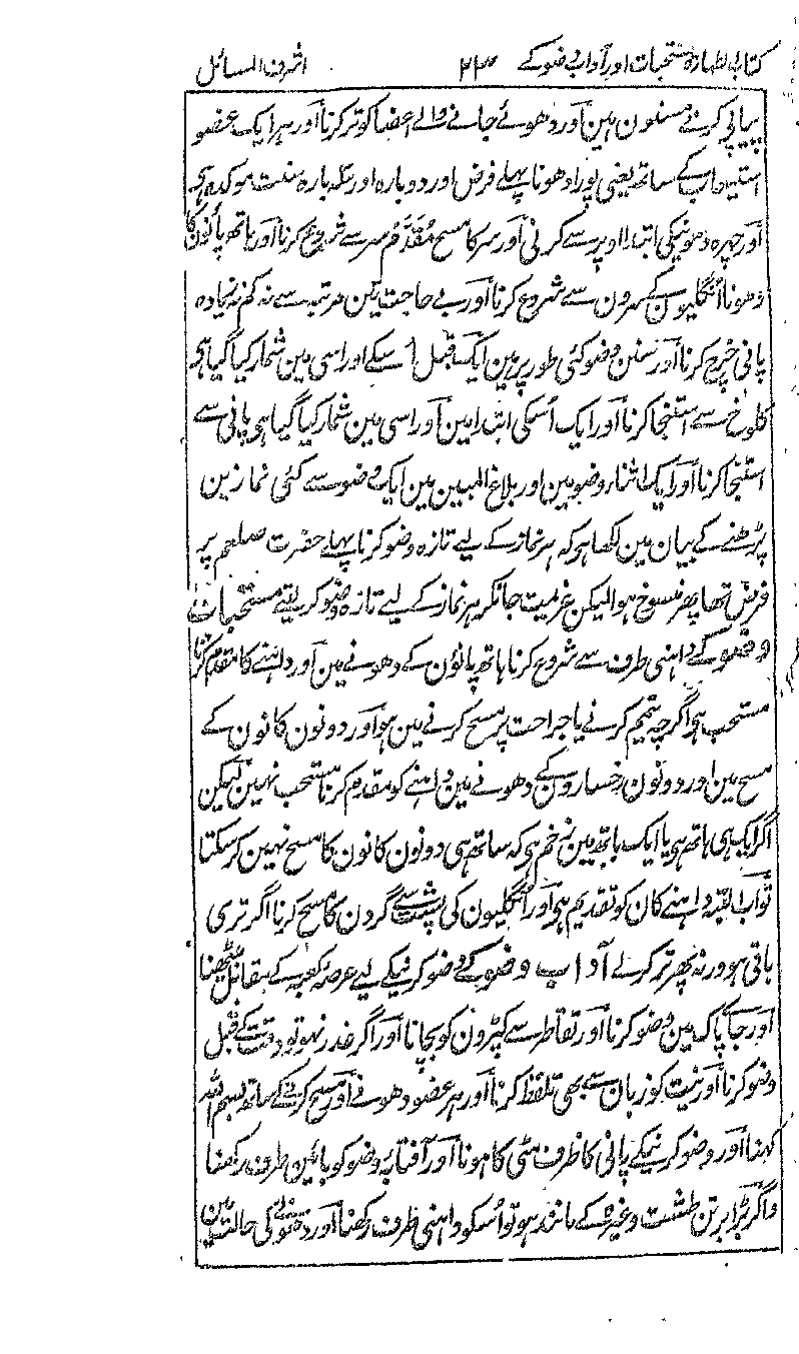 کتاب الطہارۃ مستحبات اور آداب وضو کے ۲۳ اشرف المسائل
پیاپی کرنے مسنون ہین اور دھوئے جانے والے اعضا کو تر کرنا اور ہر ایک عضو
استیعاب کے ساتھ یعنی پورا دھونا پہلے فرض اور دوبارہ اور سہ بارہ سنت موکدہ ہی
اور چہرہ دھونیکی ابتدا اوپر سے کرنی اور سر کا مسح مُقَدَّم سر سے شروع کرنا اور ہاتھ پانؤن کا
دھونا انگلیون کے سرون سے شروع کرنا اور بے حاجت تین مرتبہ سے نہ کم نہ زیادہ
پانی خرچ کرنا اور سنن وضو کئی طور پر ہین ایک قبل اسکے اور اسی مین شمار کیا گیا ہی
کلوخ سے استنجا کرنا اور ایک اُسکی ابتدا مین اور اسی مین شمار کیا گیا ہی پانی سے
استنجا کرنا اور ایک اثناء وضو مین اور بلاغ المبین مین ایک وضو سے کئی نمازین
پڑھنے کے بیان مین لکھا ہی کہ ہر نماز کے لیے تازہ وضو کرنا پہلے حضرت صلعم پر
فرض تھا پھر منسوخ ہوا لیکن عزیمت جانکر ہر نماز کے لیے تازہ وضو کرتے تھے مستحبات
وضو کے داہنی طرف سے شروع کرنا ہاتھ پانؤن کے دھونے مین اور داہنے کا مقدم کرنا
مستحب ہی اگرچہ تیمم کرنے یا جراحت پر مسح کرنے مین ہو اور دونون کانون کے
مسح مین اور دونون رخسارون کے دھونے مین داہنے کو مقدم کرنا مستحب نہین لیکن
اگر ایک ہی ہاتھ ہی یا ایک ہاتھ مین زخم ہی کہ ساتھ ہی دونون کانون کا مسح نہین کر سکتا
تو البتہ داہنے کان کو تقدیم ہی اور اُنگلیون کی پشت سے گردن کا مسح کرنا اگر تری
باقی ہو ورنہ پھر تر کرلے آداب وضو کے وضو کرنیکے لیے کعبہ کے مقابل بیٹھنا
اور جاے پاک مین وضو کرنا اور تقاطر سے کپڑون کو بچانا اور اگر عذر نہو تو وقت کے قبل
وضو کرنا اور نیت کو زبان سے بھی تلفظ کرنا اور ہر عضو دھونے اور مسح کرنے کے ساتھ بسم اللہ
کہنا اور وضو کرنیکے پانی کا ظرف مٹی کا ہونا اور آفتابۂ وضو کو بائین طرف رکھنا
واگر بڑا برتن طشت وغیرہ کے مانند ہو تو اُسکو داہنی طرف رکھنا اور دھونے کی حالت مین